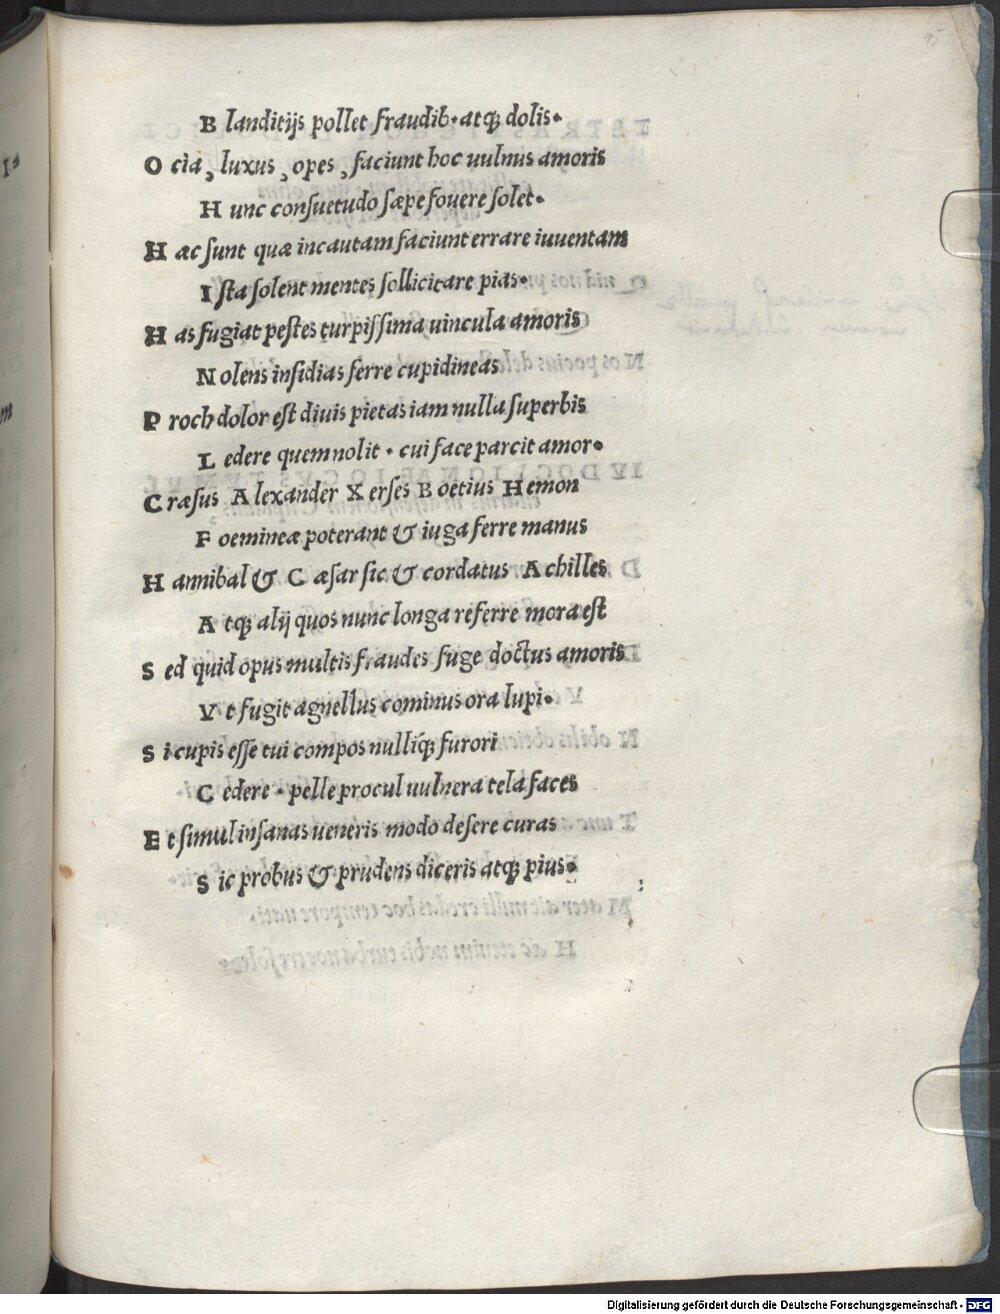 B landitijs pollet fraudib·atq3 dolis·
O cia, luxus, opes, faciunt hoc uulnus amoris
H unc consuetudo sæpe fouere solet·
H æc sunt quæ incautam faciunt errare iuuentam
I sta solent mentes sollicitare pias·
H as fugiat pestes turpissima uincula amoris
N olens insidias ferre cupidineas
P roch dolor est diuis pietas iam nulla superbis
L edere quem nolit · cui face parcit amor·
C ræsus Alexander Xerses Boetius Hemon
F oemineæ poterant & iuga ferre manus
H annibal & Cæsar sic & cordatus Achilles
A tq3 alij quos nunc longa referre mora est
S ed quid opus multis fraudes fuge doctus amoris
V t fugit agnellus cominus ora lupi·
S i cupis esse tui compos nulliq3 furori
C edere · pelle procul uulnera tela faces
E t simul insanas ueneris modo desere curas
S ic probus & prudens diceris atq3 pius·
Digitalisierung gefördert durch die Deutsche Forschungsgemeinschaft - DFG